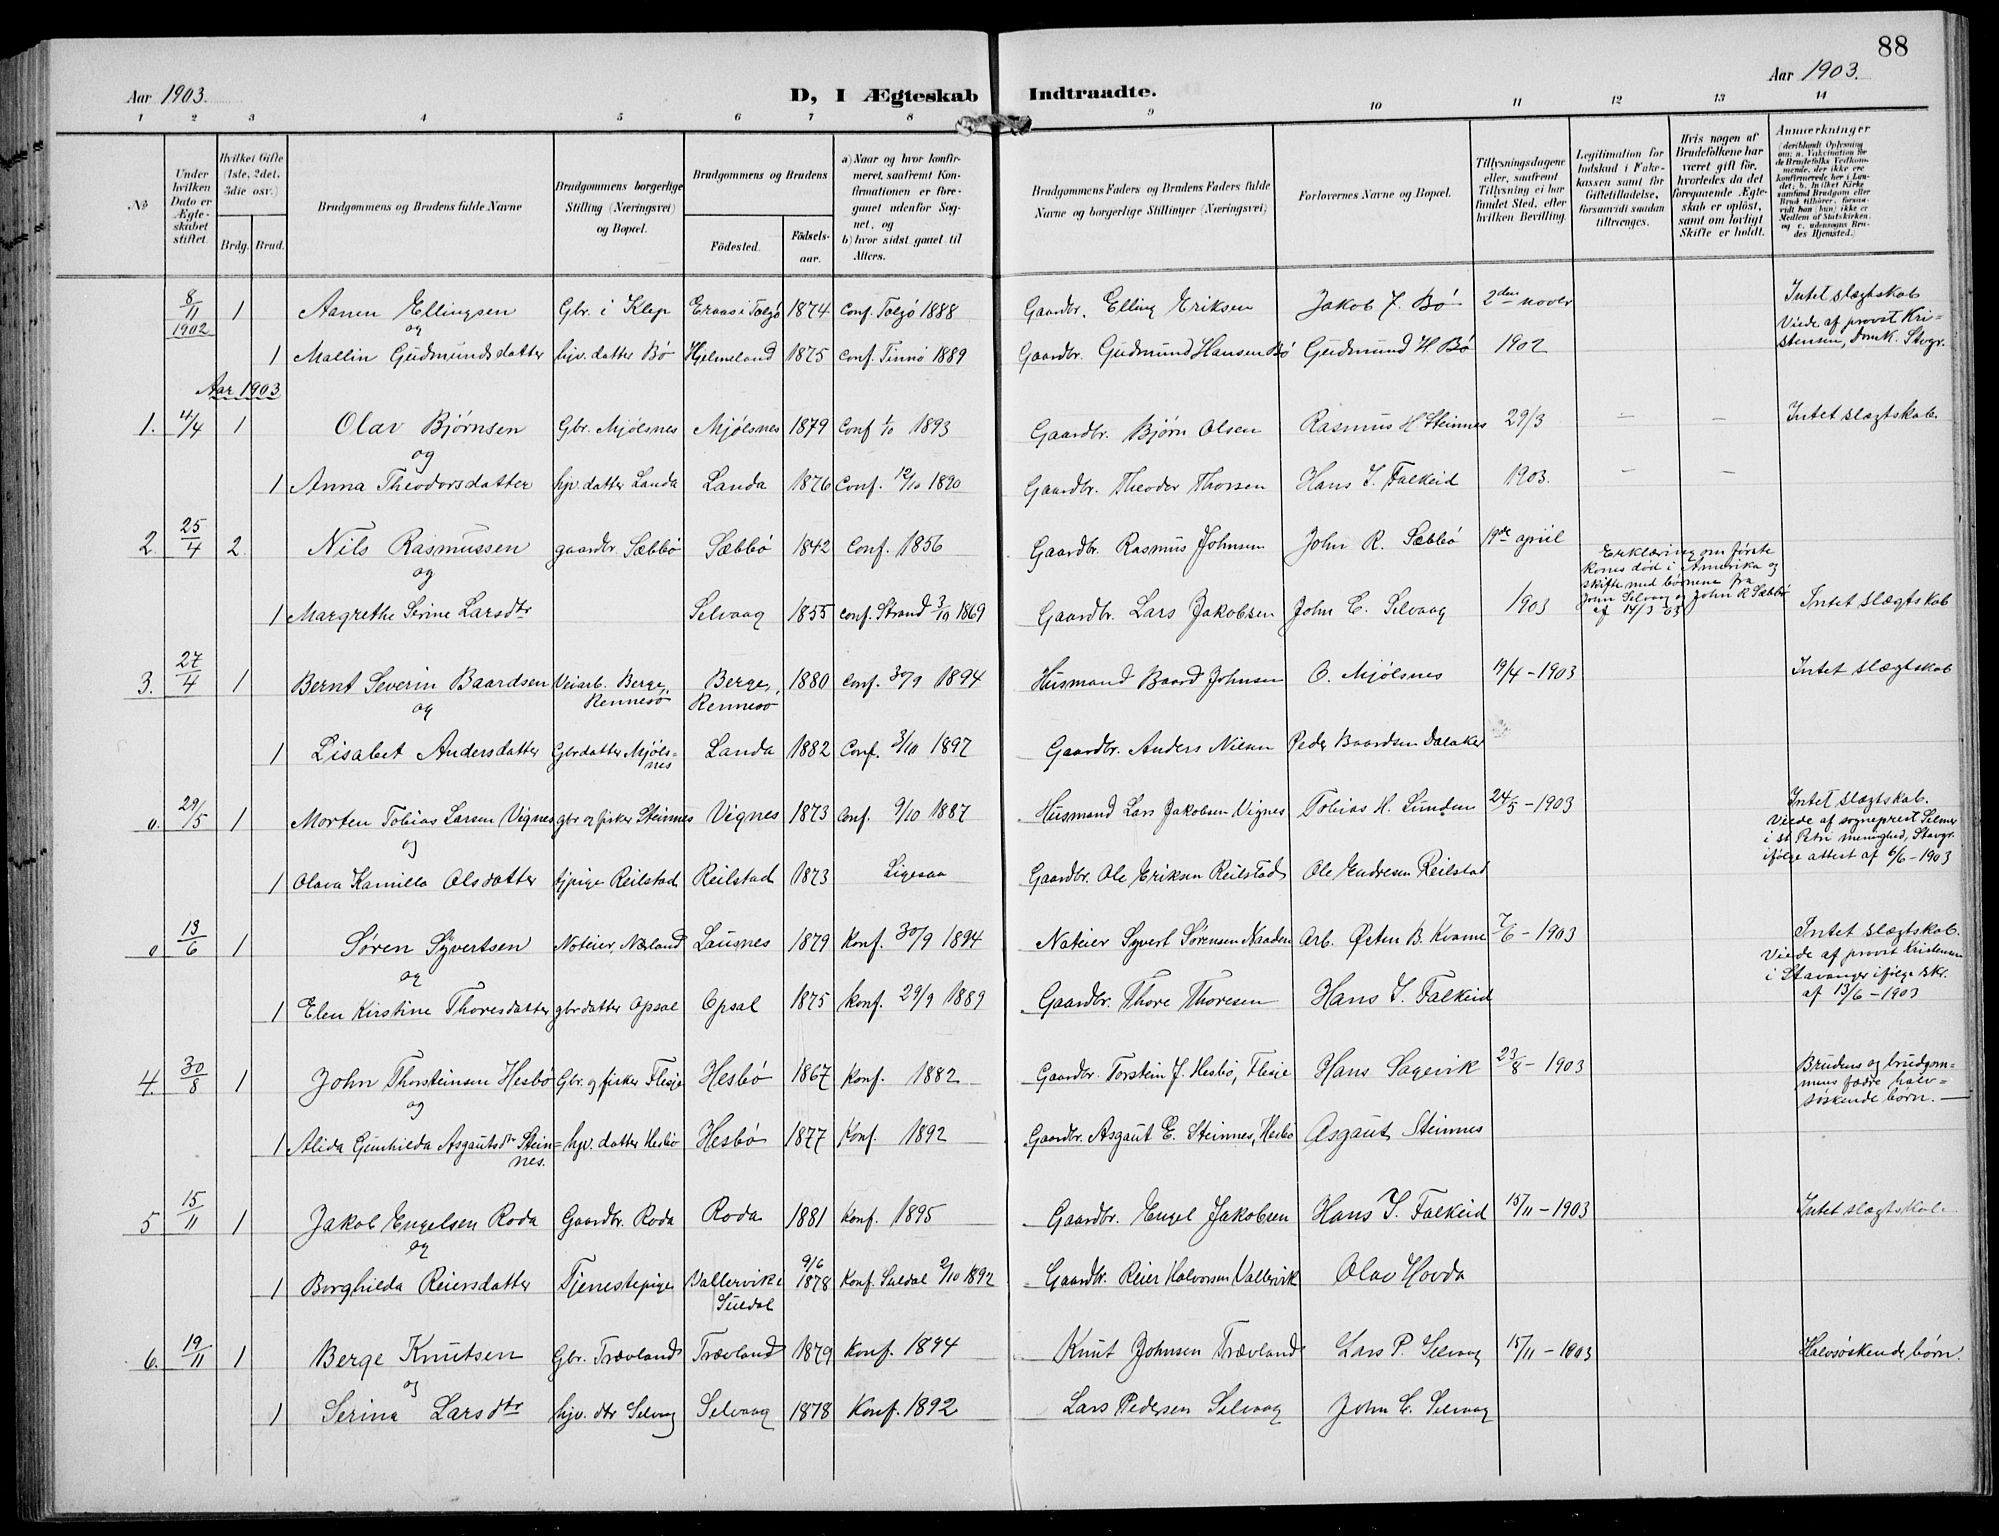 88
Aar 1903.
D, I Ægteskab Indtraadte.
Aar 1903.
1 2 3 4 5 6 7 8 9 10 11 12 13 14
No
Under hvilken Dato er Ægteskabet stiftet.
Hvilket Gifte (1ste, 2det, 3die osv.)
Brdg. Brud.
Brudgommens og Brudens fulde Navne
Brudgommens borgerlige Stilling (Næringsvei) og Bopæl.
Brudgommens og Brudens
Fødested. Fødsels-aar.
a) Naar og hvor konfirmeret, saafremt Konfirmationen er foregaaet udenfor Sognet, og
b) hvor sidst gaaet til Alters.
Brudgommens Faders og Brudens Faders fulde Navne og borgerlige Stillinger (Næringsvei)
Forlovernes Navne og Bopæl.
Tillysningsdagene eller, saafremt Tillysning ei har fundet Sted, efter hvilken Bevilling.
Legitimation for Indskud i Enkekassen samt for Giftetilladelse, forsaavidt saadan tiltrænges.
Hvis nogen af Brudefolkene har været gift før, hvorledes da det foregaaende Ægteskab er opløst, samt om lovligt Skifte er holdt.
Anmærkninger (deriblandt Oplysning om: a. Vakcination for de Brudefolks Vedkommende, der ikke ere konfirmerede her i Landet; b. hvilket Kirkesamfund Brudgom eller Brud tilhører, forsaavidt han (hun) ikke er Medlem af Statskirken, og c. udensogns Brudes Hjemsted.)
8/11 1902 1 Aanen Ellingsen Gbr. i Klep Eraas i Talgø 1874 Conf. Talgø 1888 Gaardbr. Elling Eriksen Jakob J. Bø 2den novbr Intet slægtskab
og
Viede af provst Kristensen, Domk. Stvgr.
1 Mallin Gudmundsdatter hjv. datter Bø Hjelmeland 1875 Conf. Finnø 1889 Gaardbr. Gudmund Hansen Bø Gudmund H Bø 1902
Aar 1903
1. 4/4 1 Olav Bjørnsen Gbr. Mjølsnes Mjølsnes 1879 Conf 1/10 1893 Gaardbr. Bjørn Olsen Rasmus H Steinnes 29/3 — — Intet slægtskab.
og
1 Anna Theodorsdatter hjv. datter Landa Landa 1876 Conf. 12/10 1890 Gaardbr. Theodor Thorsen Hans I. Falkeid 1903. — —
2. 25/4 2 Nils Rasmussen gaardbr. Sæbbø Sæbbø 1842 Conf. 1856 Gaardbr. Rasmus Johnsen John R. Sæbbø 19de april
og
Erklæring om første kones død i Amerika og skifte med børnene fra John Selvaag og John R Sæbbø af 14/3 03
1 Margrethe Serine Larsdtr Selvaag 1855 Conf. Strand 3/10 1869 Gaardbr. Lars Jakobsen John E. Selvaag 1903 Intet slægtskab
3. 27/4 1 Bernt Severin Baardsen Veiarb. Berge, Rennesø Berge, Rennesø 1880 Conf. 30/9 1894 Husmand Baard Johnsen O. Mjølsnes 19/4 - 1903 Intet slægtskab
og
1 Lisabet Andersdatter Gbrdatter Mjølsnes Landa 1882 Conf. 3/10 1897 Gaardbr. Anders Nilsen Peder Baardsen Dalaker
0. 29/5 1 Morten Tobias Larsen Vignes gbr og fisker Steinnes Vignes 1873 Conf. 9/10 1887 Husmand Lars Jakobsen Vignes Tobias H. Lunden 24/5 - 1903 Intet slægtskab.
og
Viede af sogneprest Selmer i St Petri menighed, Stavgr. ifølge attest af 6/6 - 1903
1 Olava Kamilla Olsdatter tjpige Reilstad Reilstad 1873 Ligesaa Gaardbr. Ole Eriksen Reilstad Ole Endresen Reilstad
0 13/6 1 Søren Syvertsen Noteier, Nærland Lausnes 1879 Konf. 30/9 1894 Noteier Syvert Sørensen Naaden Arb. Østen B. Kvame 7/6 - 1903 Intet slægtskab.
og
Viede af provst Kristensen i Stavanger ifølge skr. af 13/6 - 1903
1 Elen Kirstine Thoresdatter gbrdatter Opsal Opsal 1875 Konf. 29/9 1889 Gaardbr. Thore Thoresen Hans I. Falkeid
4. 30/8 1 John Thorsteinsen Hesbø Gbr. og fisker Flesje Hesbø 1867 Konf. 1882 Gaardbr. Torstein J. Hesbø, Flesje Hans Sagevik 23/8 - 1903 Brudens og brudgommens fædre halvsøskende børn. —
og
1 Alida Gunhilda Asgautsdtr Steinnes. hjv. datter Hesbø Hesbø 1877 Konf. 1892 Gaardbr. Asgaut E. Steinnes, Hesbø Asgaut Steinnes
5 15/11 1 Jakob Engelsen Roda Gaardbr. Roda Roda 1881 Konf. 1895 Gaardbr. Engel Jakobsen Hans I. Falkeid 15/11 - 1903 Intet slægtskab.
og
1 Borghilda Reiersdatter Tjenestepige Vallervik i Suldal 9/6 1878 Konf. Suldal 2/10 1892 Gaardbr. Reier Halvorsen Vallervik Olav Hovda
6. 19/11 1 Berge Knutsen Gbr. Trævland Trævland 1879 Konf. 1894 Knut Johnsen Trævland Lars P. Selvaag 15/11 - 1903 Halvsøskende børn.
og
1 Serina Larsdtr hjv. dtr Selvaag Selvaag 1878 Konf. 1892 Lars Pedersen Selvaag John E. Selvaag